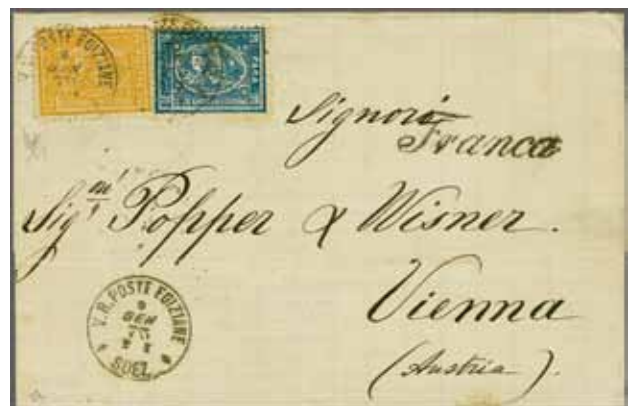 V. R. POSTE EGIZIANE
PARA
Signori
Franca
Sig.ri Popper & Wisner.
Vienna
(Austria).
V. R. POSTE EGIZIANE
9
GEN
SUEZ